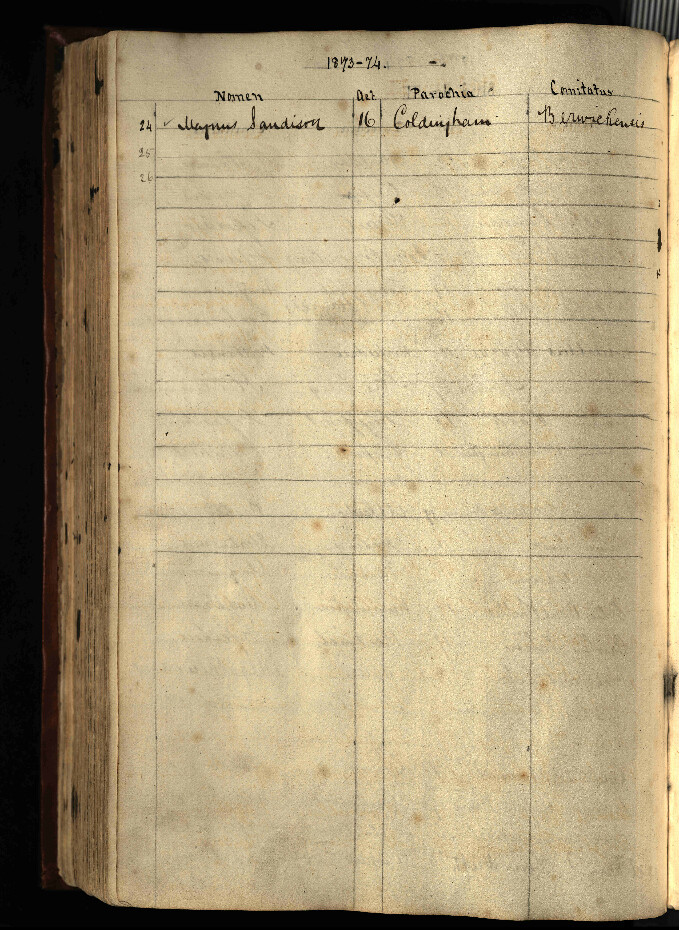 1873-74.
Nomen Aet. Parochia Comitatus
24 Magnus Sandison 16 Coldingham Berwickensis
25
26